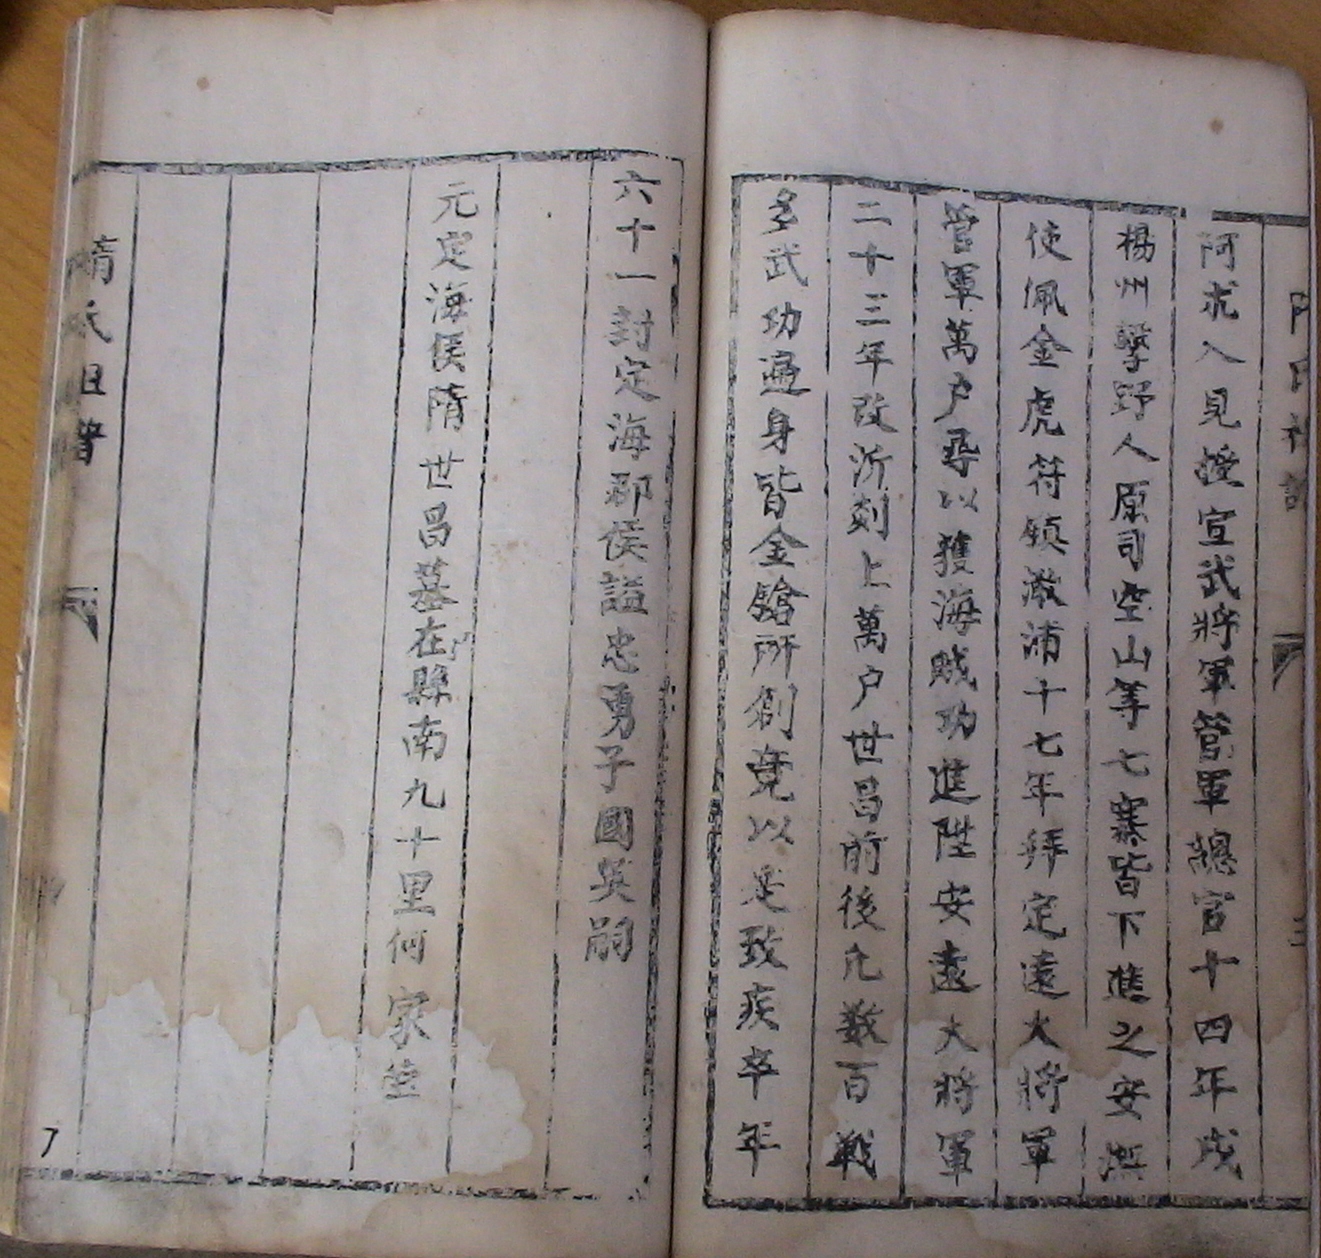 阿朮入見授宣武將軍管軍總官十四年戍
楊州擊野人原司空山等七寨皆下進之安撫
使佩金虎符鎮澉浦十七年拜定遠大將軍
管軍萬户尋以獲海賊功進陞安遠大將軍
二十三年改沂剡上萬户世昌前後凢數百戰
多武功遍身皆金鎗所創竟以是致疾卒年
六十一封定海郡侯謚忠勇子國英嗣
元定海侯隋世昌墓在縣南九十里何家
隋氏祖譜
7